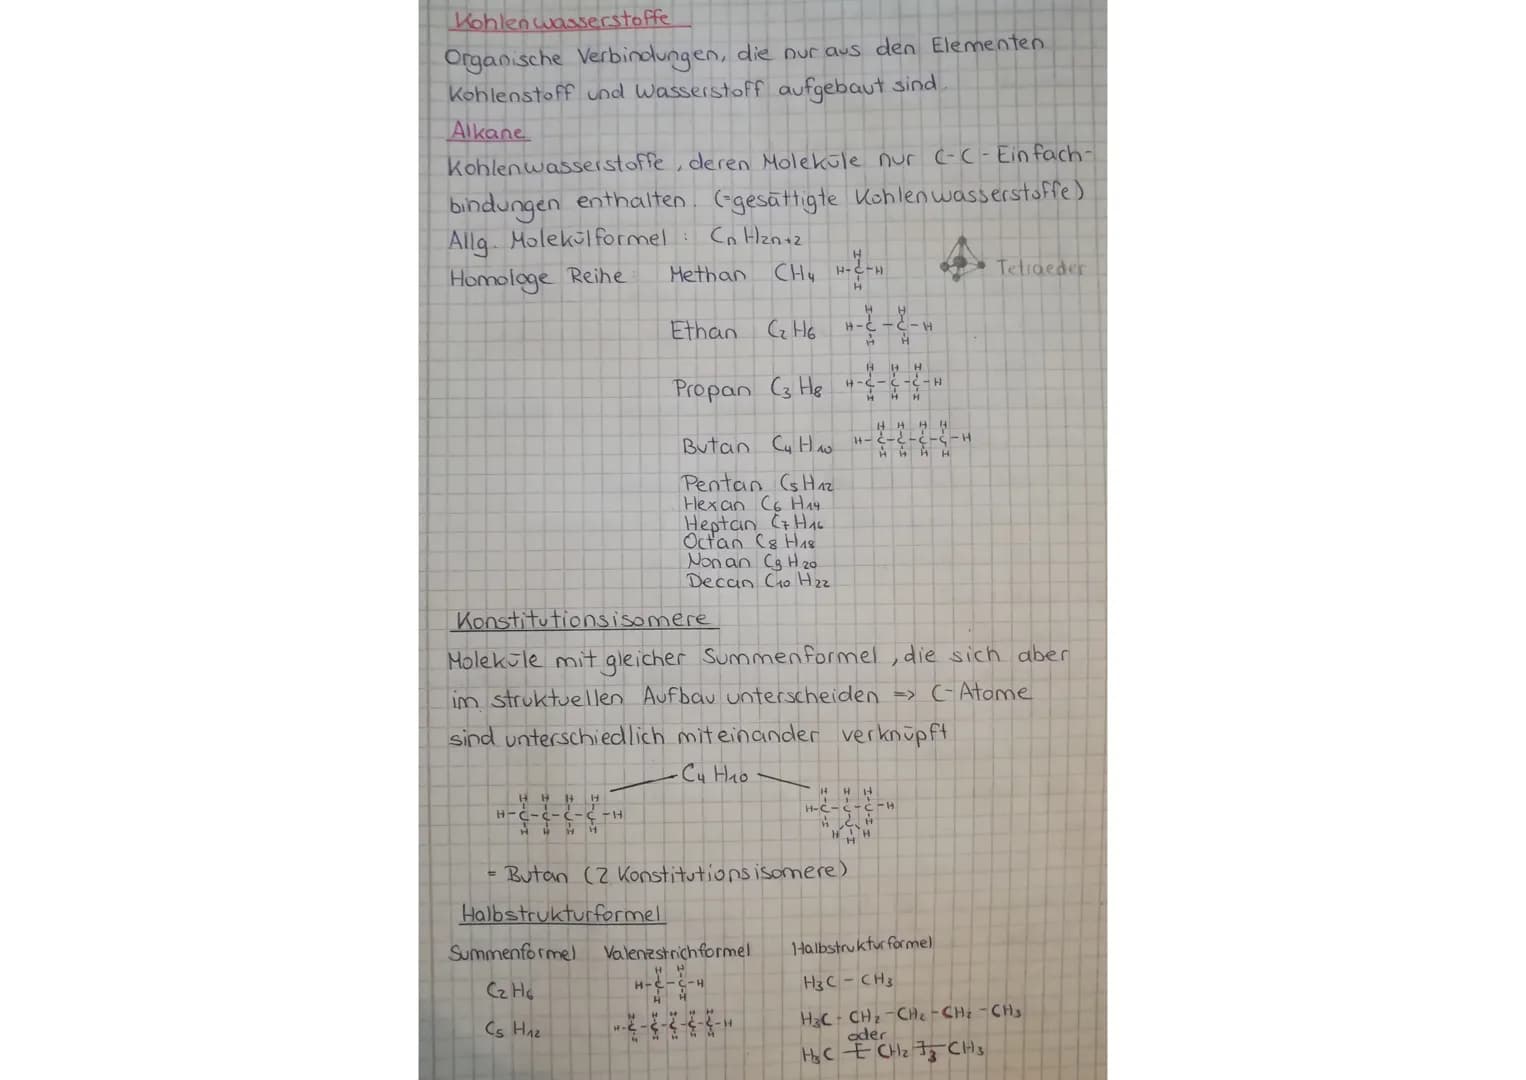 Kohlenwasserstoffe
Organische Verbindungen, die nur aus den Elementen
Kohlenstoff und Wasserstoff aufgebaut sind.
Alkane
Kohlenwasserstoffe, deren Moleküle nur C-C-Einfach-
bindungen enthalten. (=gesättigte Kohlenwasserstoffe)
Allg. Molekülformel: CnH2n+2
Homologe Reihe Methan CH4 Tetraeder
Ethan C2H6
Propan C3H8
Butan C4H10
Pentan C5H12
Hexan C6H14
Heptan C7H16
Octan C8H18
Nonan C9H20
Decan C10H22
Konstitutionsisomere
Moleküle mit gleicher Summenformel, die sich aber
im struktuellen Aufbau unterscheiden => C-Atome
sind unterschiedlich miteinander verknüpft
C4H10
= Butan (2 Konstitutionsisomere)
Halbstrukturformel
Summenformel Valenzstrichformel Halbstrukturformel
C2H6 H3C-CH3
C5H12 H3C-CH2-CH2-CH2-CH3
oder
H3C [CH2]3 CH3